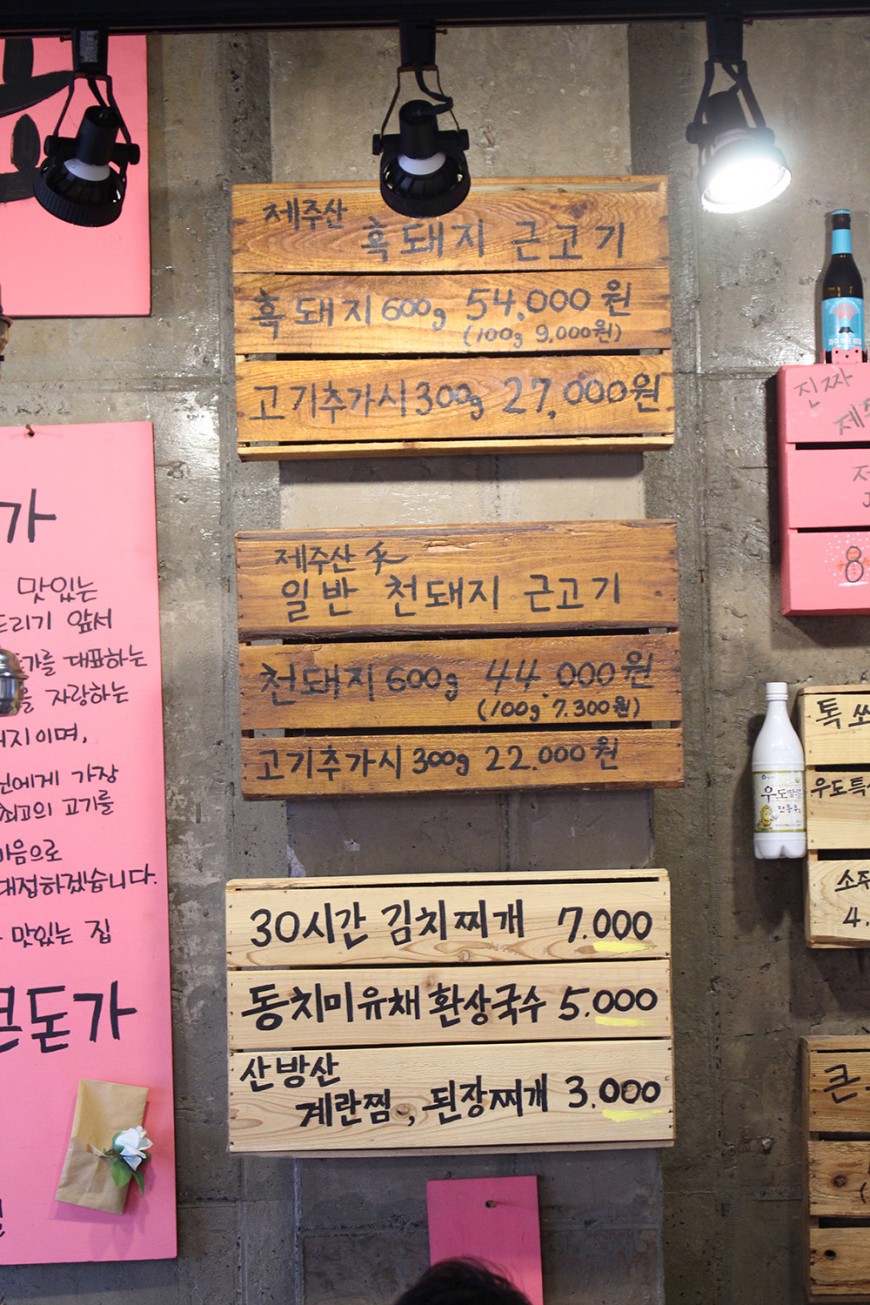 제주산
흑돼지 근고기
흑돼지 600g 54,000원
(100g 9,000원)
고기추가시 300g 27,000원
제주산
일반 천돼지 근고기
천돼지 600g 44.000원
(100g 7.300원)
고기추가시 300g 22.000원
30시간 김치찌개 7.000
동치미유채 환상국수 5.000
산방산
계란찜, 된장찌개 3.000
가
맛있는
드리기 앞서
가를 대표하는
을 자랑하는
돼지이며,
에게 가장
최고의 고기를
마음으로
대접하겠습니다.
맛있는 집
큰돈가
진짜
제
8
톡 쏘
우도특
소주
4.
우도땅콩
전통주
큰